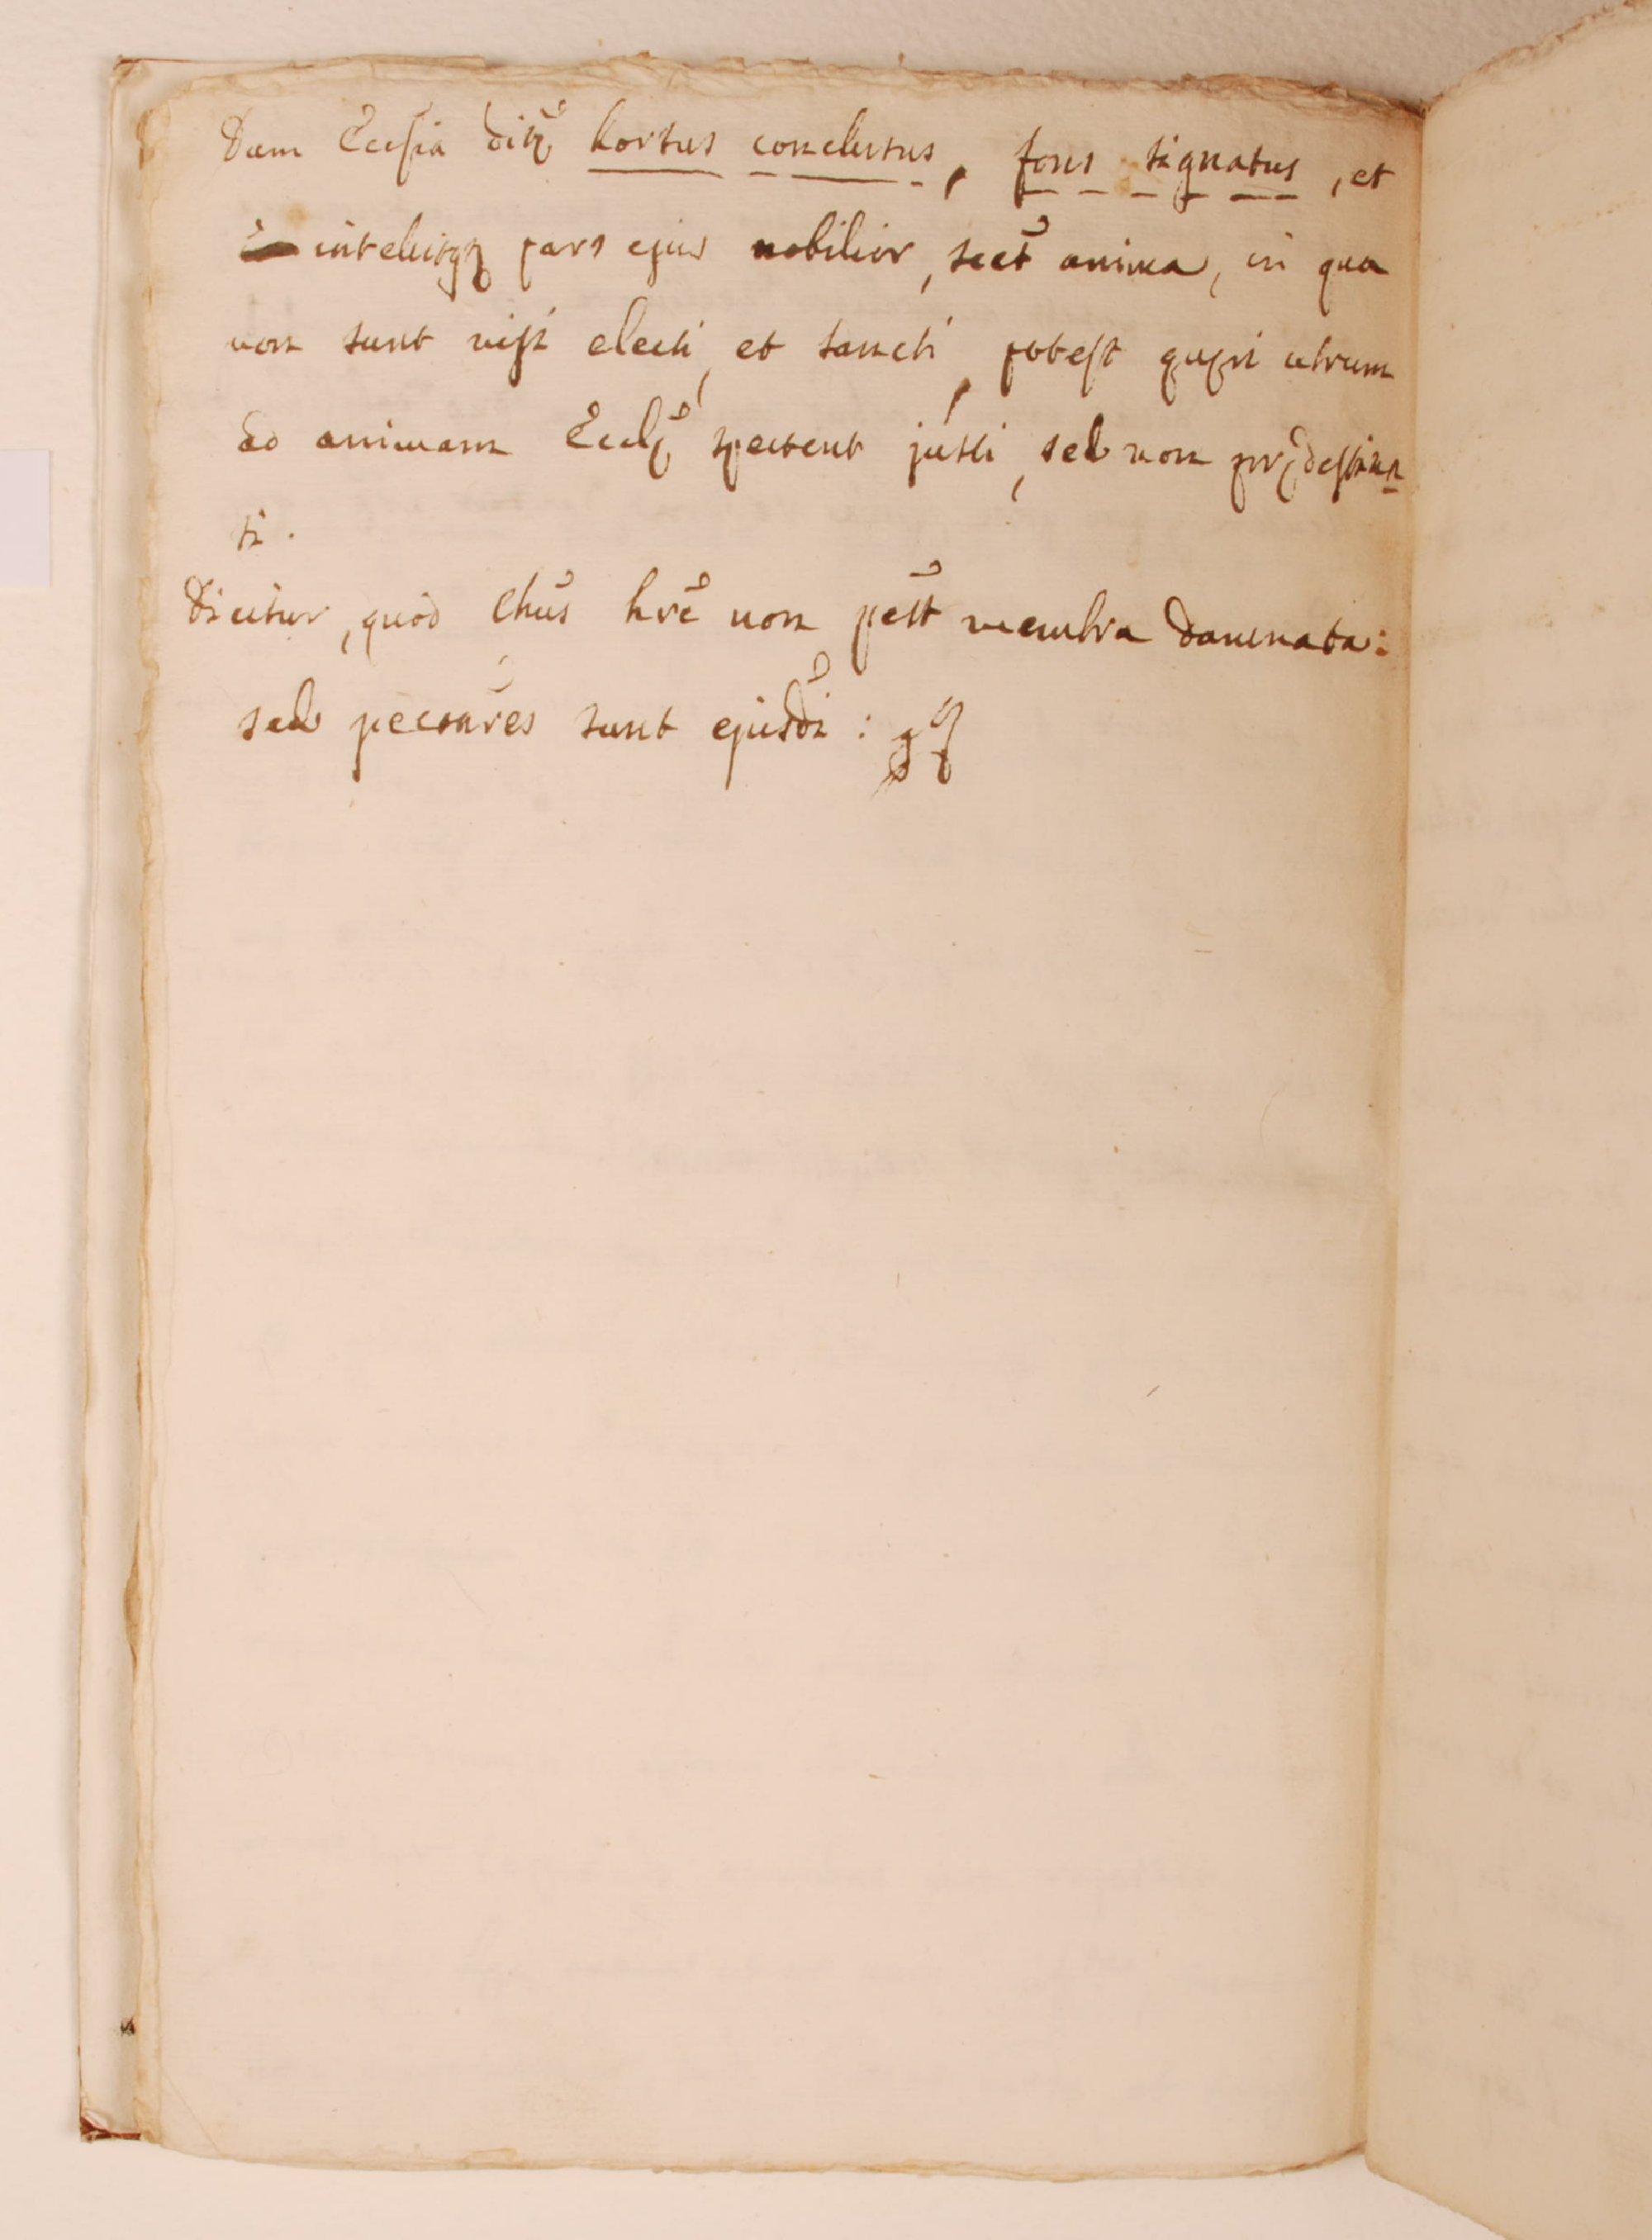 Dum Ecclsia dicr̃ hortus conclusus, fons signatus, et
intelligr̃ pars ejus nobilior, scet̃ anima, in qua
non sunt nisi electi, et sancti, potest quęri utrum
ad animam Ecclę̃ spectent justi, sed non prędestina-
ti.
Dicitur, quod Chũs hrẽ non põt membra damnata:
sed peccatõres sunt ejusdĩ: